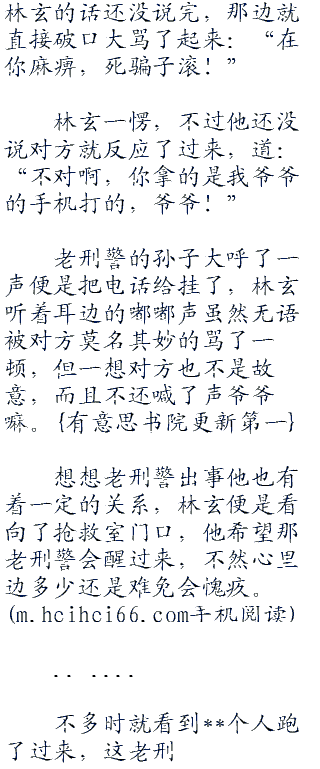 林玄的话还没说完，那边就
直接破口大骂了起来：“在
你麻痹，死骗子滚！”
林玄一愣，不过他还没
说对方就反应了过来，道：
“不对啊，你拿的是我爷爷
的手机打的，爷爷！”
老刑警的孙子大呼了一
声便是把电话给挂了，林玄
听着耳边的嘟嘟声虽然无语
被对方莫名其妙的骂了一
顿，但一想对方也不是故
意，而且不还喊了声爷爷
嘛。{有意思书院更新第一}
想想老刑警出事他也有
着一定的关系，林玄便是看
向了抢救室门口，他希望那
老刑警会醒过来，不然心里
边多少还是难免会愧疚。
(m.hcihci66.com手机阅读)
.. ....
不多时就看到**个人跑
了过来，这老刑